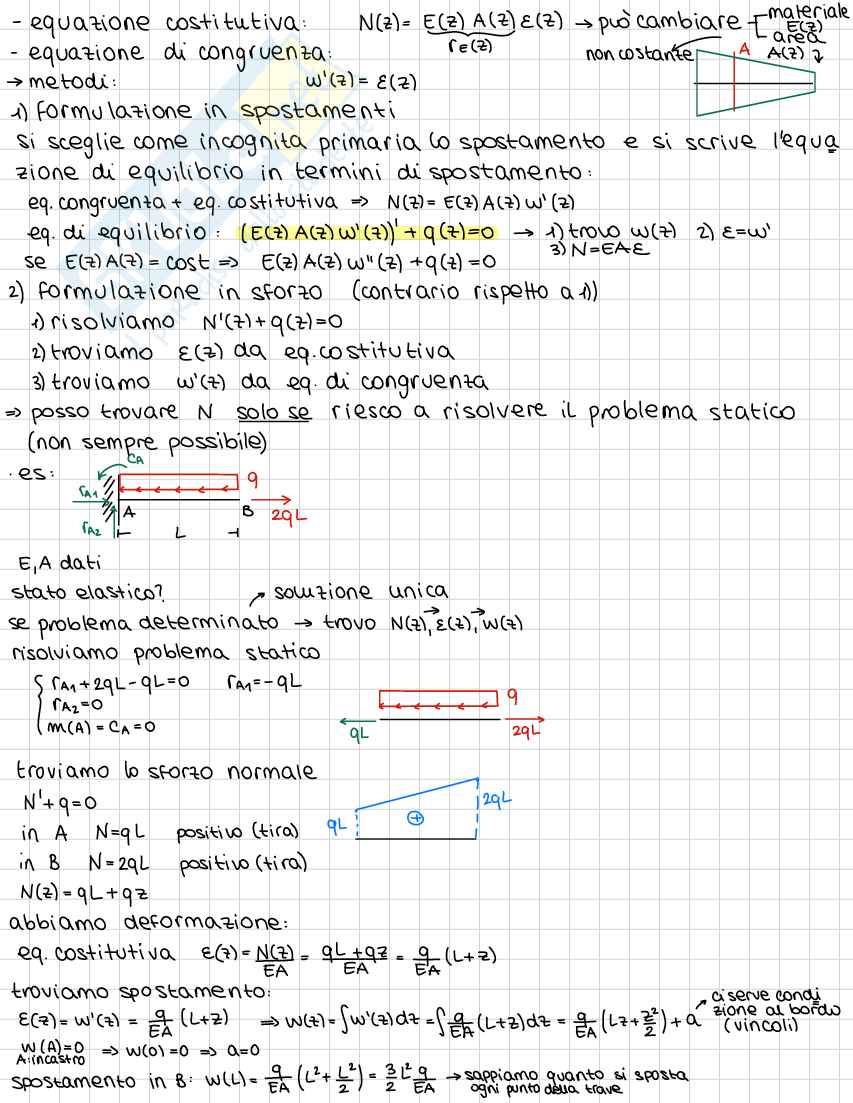 - equazione costitutiva: N(z) = E(z) A(z) ε(z) → può cambiare materiale E(z) area A(z)
r_E(z)
non costante
A
- equazione di congruenza:
→ metodi: w'(z) = ε(z)
1) formulazione in spostamenti
si sceglie come incognita primaria lo spostamento e si scrive l'equa
zione di equilibrio in termini di spostamento:
eq. congruenza + eq. costitutiva ⇒ N(z) = E(z) A(z) w'(z)
eq. di equilibrio: (E(z) A(z) w'(z))' + q(z) = 0 → 1) trovo w(z) 2) ε = w'
3) N = EAε
se E(z) A(z) = cost ⇒ E(z) A(z) w''(z) + q(z) = 0
2) formulazione in sforzo (contrario rispetto a 1))
1) risolviamo N'(z) + q(z) = 0
2) troviamo ε(z) da eq. costitutiva
3) troviamo w'(z) da eq. di congruenza
⇒ posso trovare N solo se riesco a risolvere il problema statico
(non sempre possibile)
· es:
C_A
q
r_A1
A
B
2qL
r_A2
L
E, A dati
stato elastico? ↗ soluzione unica
se problema determinato → trovo N(z), ε(z), w(z)
risolviamo problema statico
r_A1 + 2qL - qL = 0 r_A1 = -qL
r_A2 = 0
m(A) = C_A = 0
q
qL
2qL
troviamo lo sforzo normale
N' + q = 0
qL
2qL
+
in A N = qL positivo (tira)
in B N = 2qL positivo (tira)
N(z) = qL + qz
abbiamo deformazione:
eq. costitutiva ε(z) = N(z)/EA = (qL + qz)/EA = q/EA (L+z)
troviamo spostamento:
ε(z) = w'(z) = q/EA (L+z) ⇒ w(z) = ∫w'(z) dz = ∫ q/EA (L+z) dz = q/EA (Lz + z²/2) + a
ci serve condi
zione al bordo
(vincoli)
w(A) = 0 ⇒ w(0) = 0 ⇒ a = 0
A: incastro
spostamento in B: w(L) = q/EA (L² + L²/2) = 3/2 L² q/EA → sappiamo quanto si sposta
ogni punto della trave